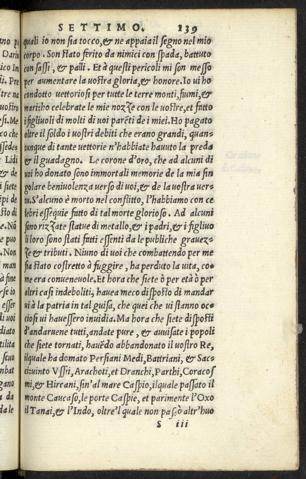 SETTIMO. 239
quali io non sia tocco, & ne appaia il segno nel mio
corpo. Son stato ferito da nimici con spada, battuto
con sassi, & palli. Et à questi pericoli mi son messo
per aumentare la uostra gloria, & honore. Io ui ho
condotto uettoriosi per tutte le terre monti, fiumi, &
mari. ho celebrate le mie nozze con le uostre, et fatto
i figliuoli di molti di uoi parēti de i miei. Ho pagato
oltre il soldo i uostri debiti che erano grandi, quan-
tunque di tante uettorie n'habbiate hauuto la preda
& il guadagno. Le corone d'oro, che ad alcuni di
uoi ho donato sono immortali memorie de la mia sin
golare beniuolenza uerso di uoi, & de la uostra uer=
tu. S'alcuno è morto nel conflitto, l'habbiamo con ce
lebri essequie fatto di tal morte glorioso. Ad alcuni
sono rizzate statue di metallo, & i padri, & i figliuo
li loro sono stati fatti essenti da le publiche grauez=
ze & tributi. Niuno di uoi che combattendo per me
sia stato costretto à fuggire, ha perduto la uita, co=
me era conueneuole. Et hora che siete ò per età ò per
altri casi indeboliti, hauea meco disposto di mandar
ui à la patria in tal guisa, che quei che ui stanno ocio
si ui hauessero inuidia. Ma hora che siete disposti
d'andaruene tutti, andate pure, & auuisate i popoli
che siete tornati, hauēdo abbandonato il uostro Re,
il quale ha domato Persiani Medi, Battriani, & Sac=
ci uinto Vssii, Arachoti, et Dranchi, Parthi, Coracos
mi, & Hircani, fin' al mare Caspio, il quale passato il
monte Caucaso, le porte Caspie, et parimente l'Oxo
il Tanai, & l'Indo, oltre'l quale non passò altr'huo
S iii